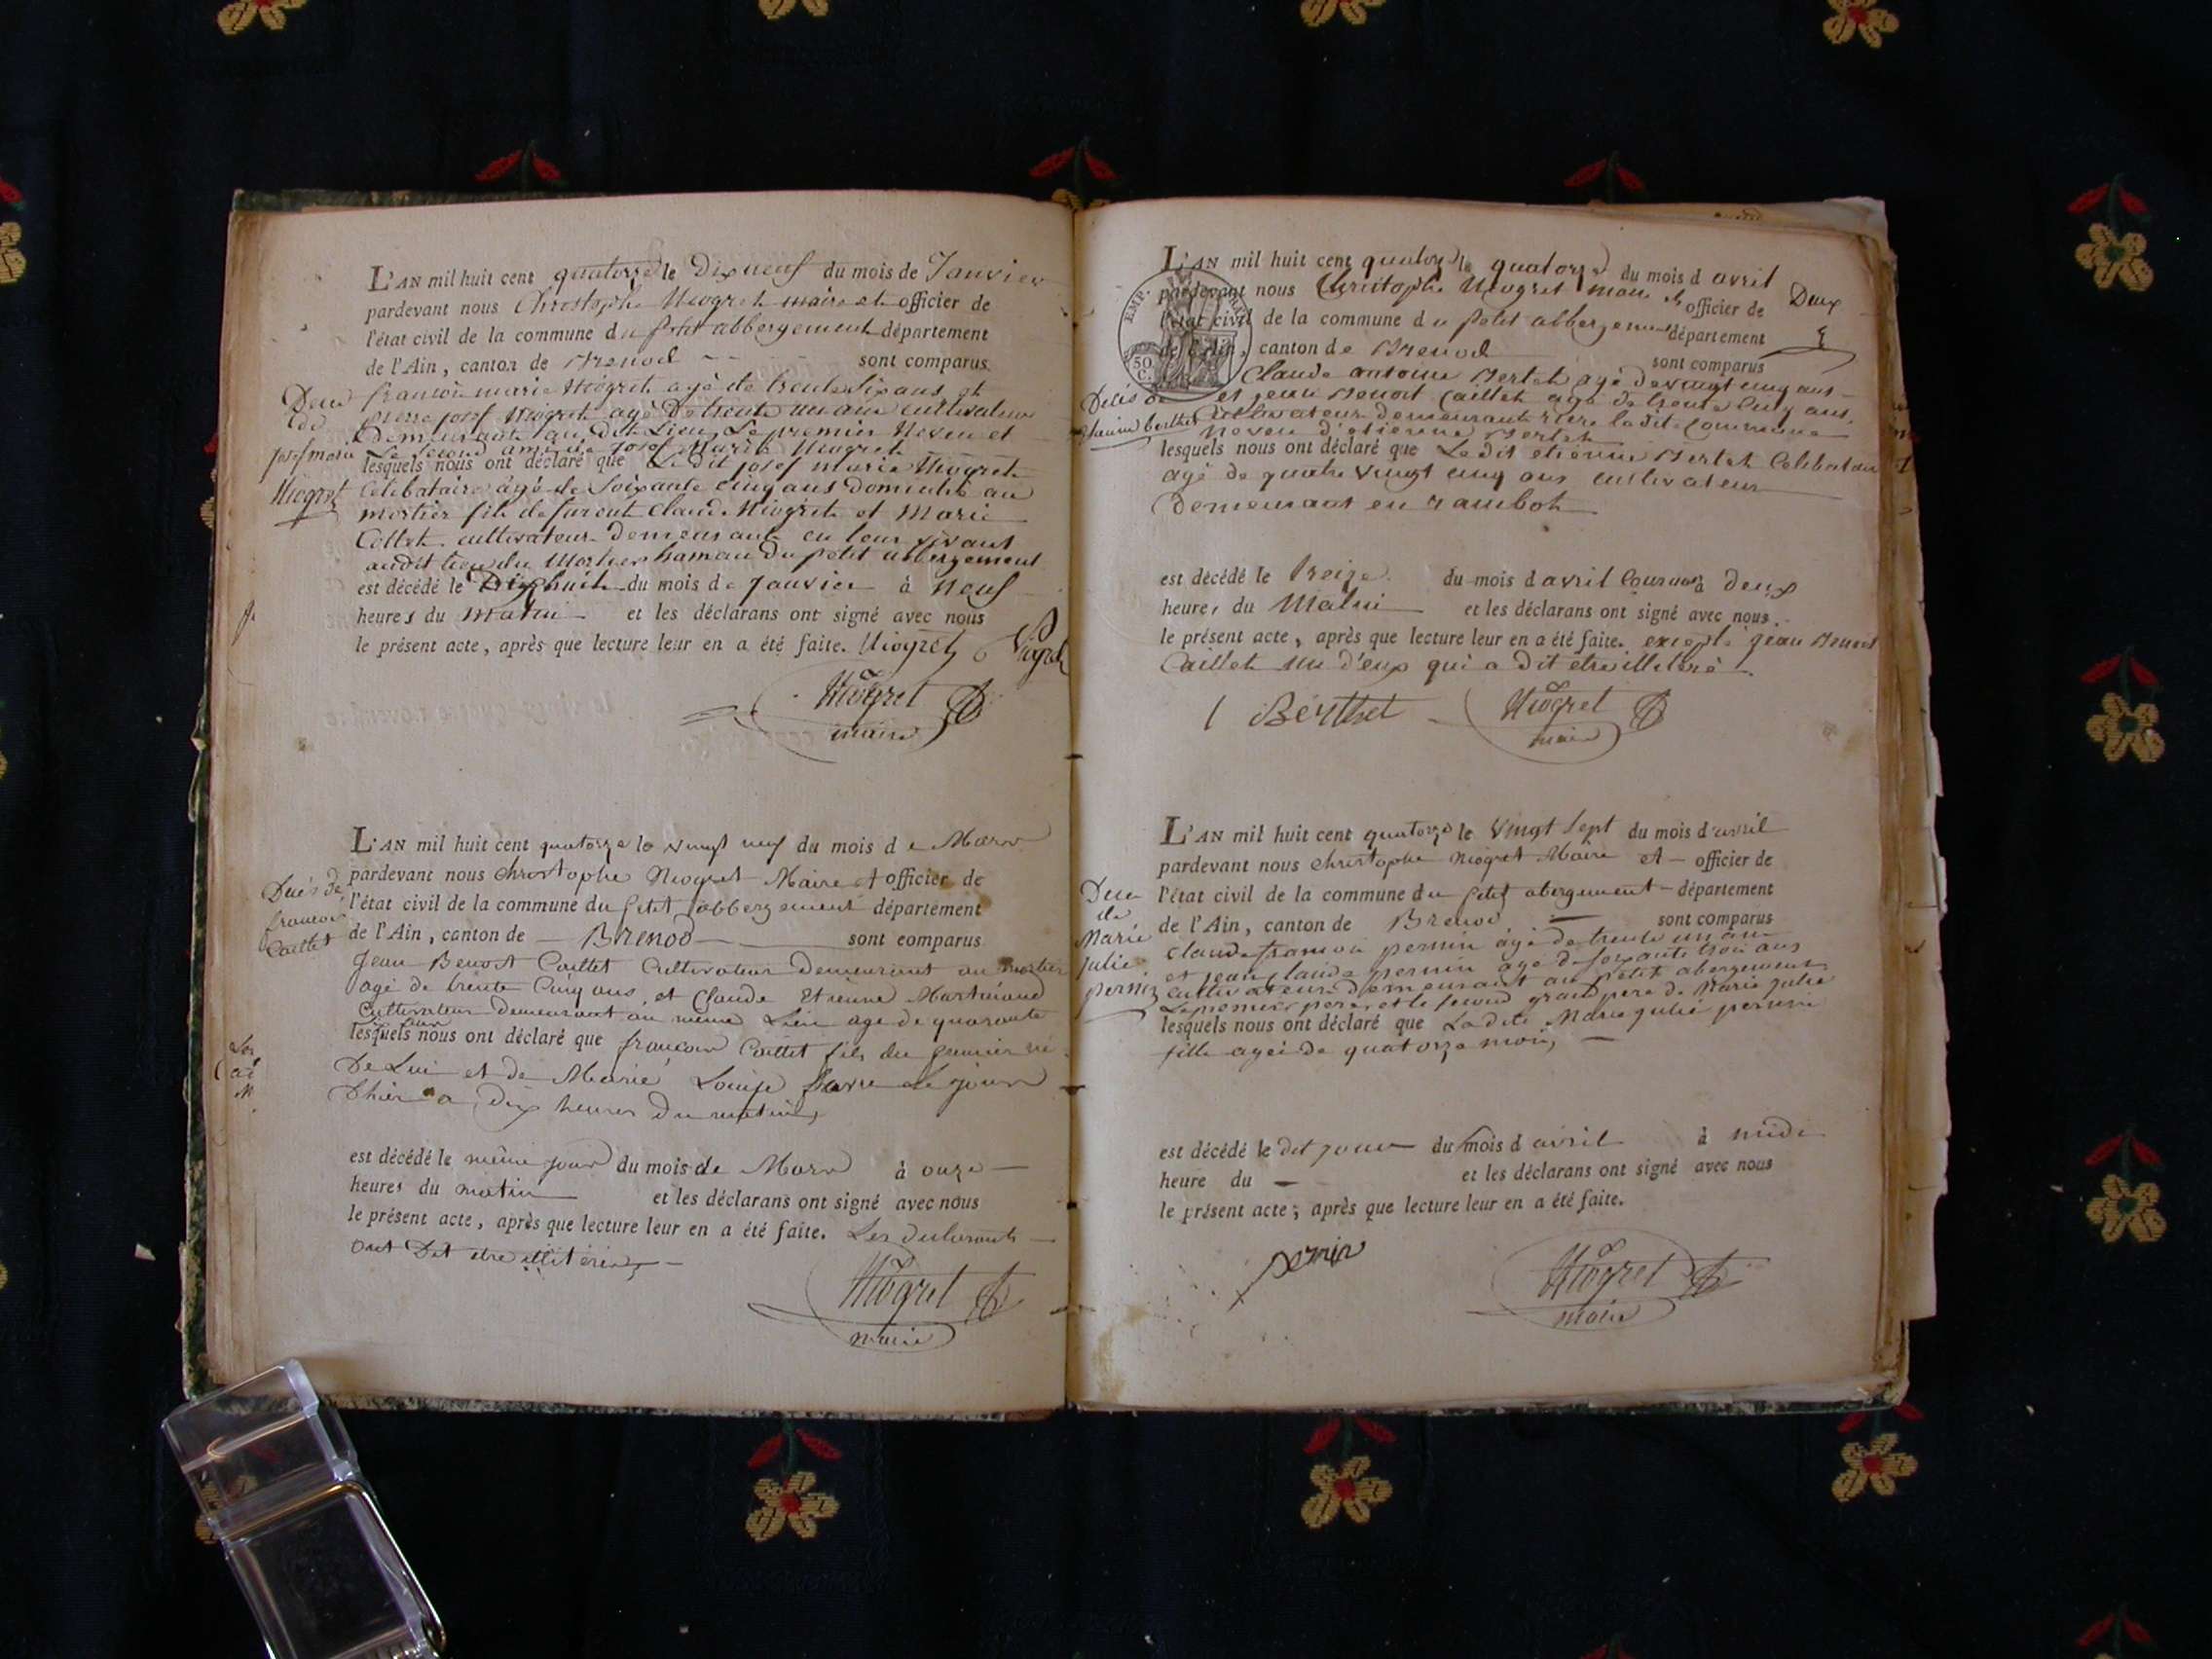 L'AN mil huit cent quatorze le Dix neuf du mois de Janvier
pardevant nous Christophe Niogret maire et officier de
l'état civil de la commune du petit abbergement département
de l'Ain, canton de Brenod sont comparus
francois marie Niogret agé de trente six ans et
pierre josef Niogret agé De trente un ans cultivateurs
Demeurants au dit Lieu Le premier Neveu et
Le second ami de josef Marie Niogret
lesquels nous ont déclaré que Le dit josef marie Niogret
Celibataire agé de soixante cinq ans domicilié au
mortier fils de furent Claude Niogret et Marie
Collet cultivateurs Demeurants en leur vivant
audit lieu du Mortier hameau du petit abbergement
est décédé le Dix huit du mois de janvier à Neuf
heures du matin et les déclarans ont signé avec nous
le présent acte, après que lecture leur en a été faite. Niogret
Niogret
maire
josef marie
Niogret
L'AN mil huit cent quatorze le vingt neuf du mois de Mars
pardevant nous Christophe Niogret Maire et officier de
l'état civil de la commune du petit abbergement département
de l'Ain, canton de Brenod sont comparus
Jean Benoit Caillet Cultivateur Demeurant au mortier
agé de trente Cinq ans et Claude Etienne Martinand
Cultivateur Demeurant au même Lieu age de quarante
lesquels nous ont déclaré que francois Caillet fils du premier né
De Lui et de Marie Louise favre Le jour
D'hier a dix heures Du matin
est décédé le même jour du mois de Mars à onze
heures du matin et les déclarans ont signé avec nous
le présent acte, après que lecture leur en a été faite. Les declarants
ont Dit etre illitérés
Niogret
maire
Decès de
francois
Caillet
L'AN mil huit cent quatorze le quatorze du mois d avril
pardevant nous Christophe Niogret maire et officier de
l'état civil de la commune du petit abbergement département
de l'Ain, canton de Brenod sont comparus
Deux
EMP.
50
C.
Claude antoine Bertet agé de vingt cinq ans
et jean Benoit Caillet agé de trente Cinq ans
Cultivateurs demeurants rière la dite Commune
Neveu d'etienne Bertet
lesquels nous ont déclaré que Le dit etienne Bertet Celibataire
agé de quatre vingt cinq ans cultivateur
Demeurant en rambot
est décédé le treize du mois d avril Courant à deux
heures du Matin et les déclarans ont signé avec nous
le présent acte, après que lecture leur en a été faite. excepté jean Benoit
Caillet un d'eux qui a Dit etre illitéré
Berthet
Niogret
maire
Decès de
etienne berthet
L'AN mil huit cent quatorze le vingt sept du mois d'avril
pardevant nous Christophe Niogret Maire et officier de
l'état civil de la commune du petit abergement département
de l'Ain, canton de Brenod sont comparus
Claude francois pernin agé de trente un ans
et jean claude pernin agé de soixante trois ans
cultivateurs demeurant au petit abergement
Le premier pere et le second grand pere de Marie julie
lesquels nous ont déclaré que Ladite Marie julie pernin
fille agée de quatorze mois
est décédé le dit jour du mois d avril à midi
heure du et les déclarans ont signé avec nous
le présent acte, après que lecture leur en a été faite.
pernin
Niogret
maire
Deces
de
Marie
julie
pernin